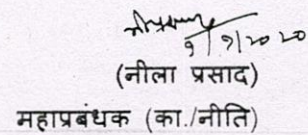 9/9/2020
(नीला प्रसाद)
महाप्रबंधक (का./नीति)